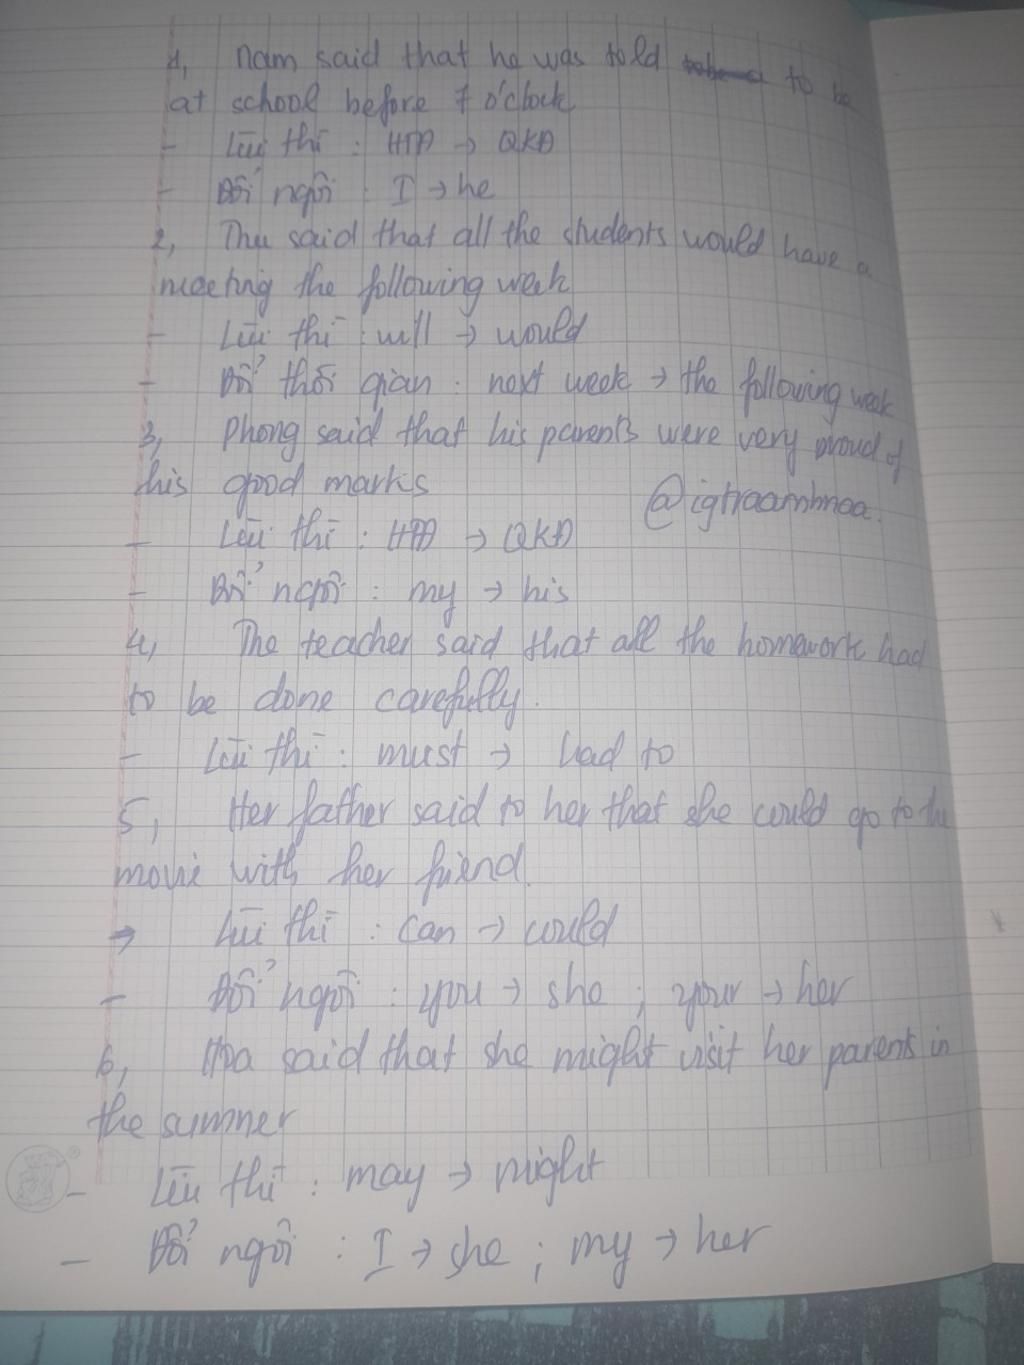 1, Nam said that he was told to be
at school before 7 o'clock
- Lùi thì : HTĐ → QKĐ
- Đổi ngôi : I → he
2, Thu said that all the students would have a
meeting the following week
- Lùi thì : will → would
- Đổi thời gian : next week → the following week
3, Phong said that his parents were very proud of
his good marks
@igtraamhnoa.
- Lùi thì : HTĐ → QKĐ
- Đổi ngôi : my → his
4, The teacher said that all the homework had
to be done carefully.
- Lùi thì : must → had to
5, Her father said to her that she could go to the
movie with her friend.
→ Lùi thì : can → could
- Đổi ngôi : you → she ; your → her
6, Hoa said that she might visit her parents in
the summer
- Lùi thì : may → might
- Đổi ngôi : I → she ; my → her